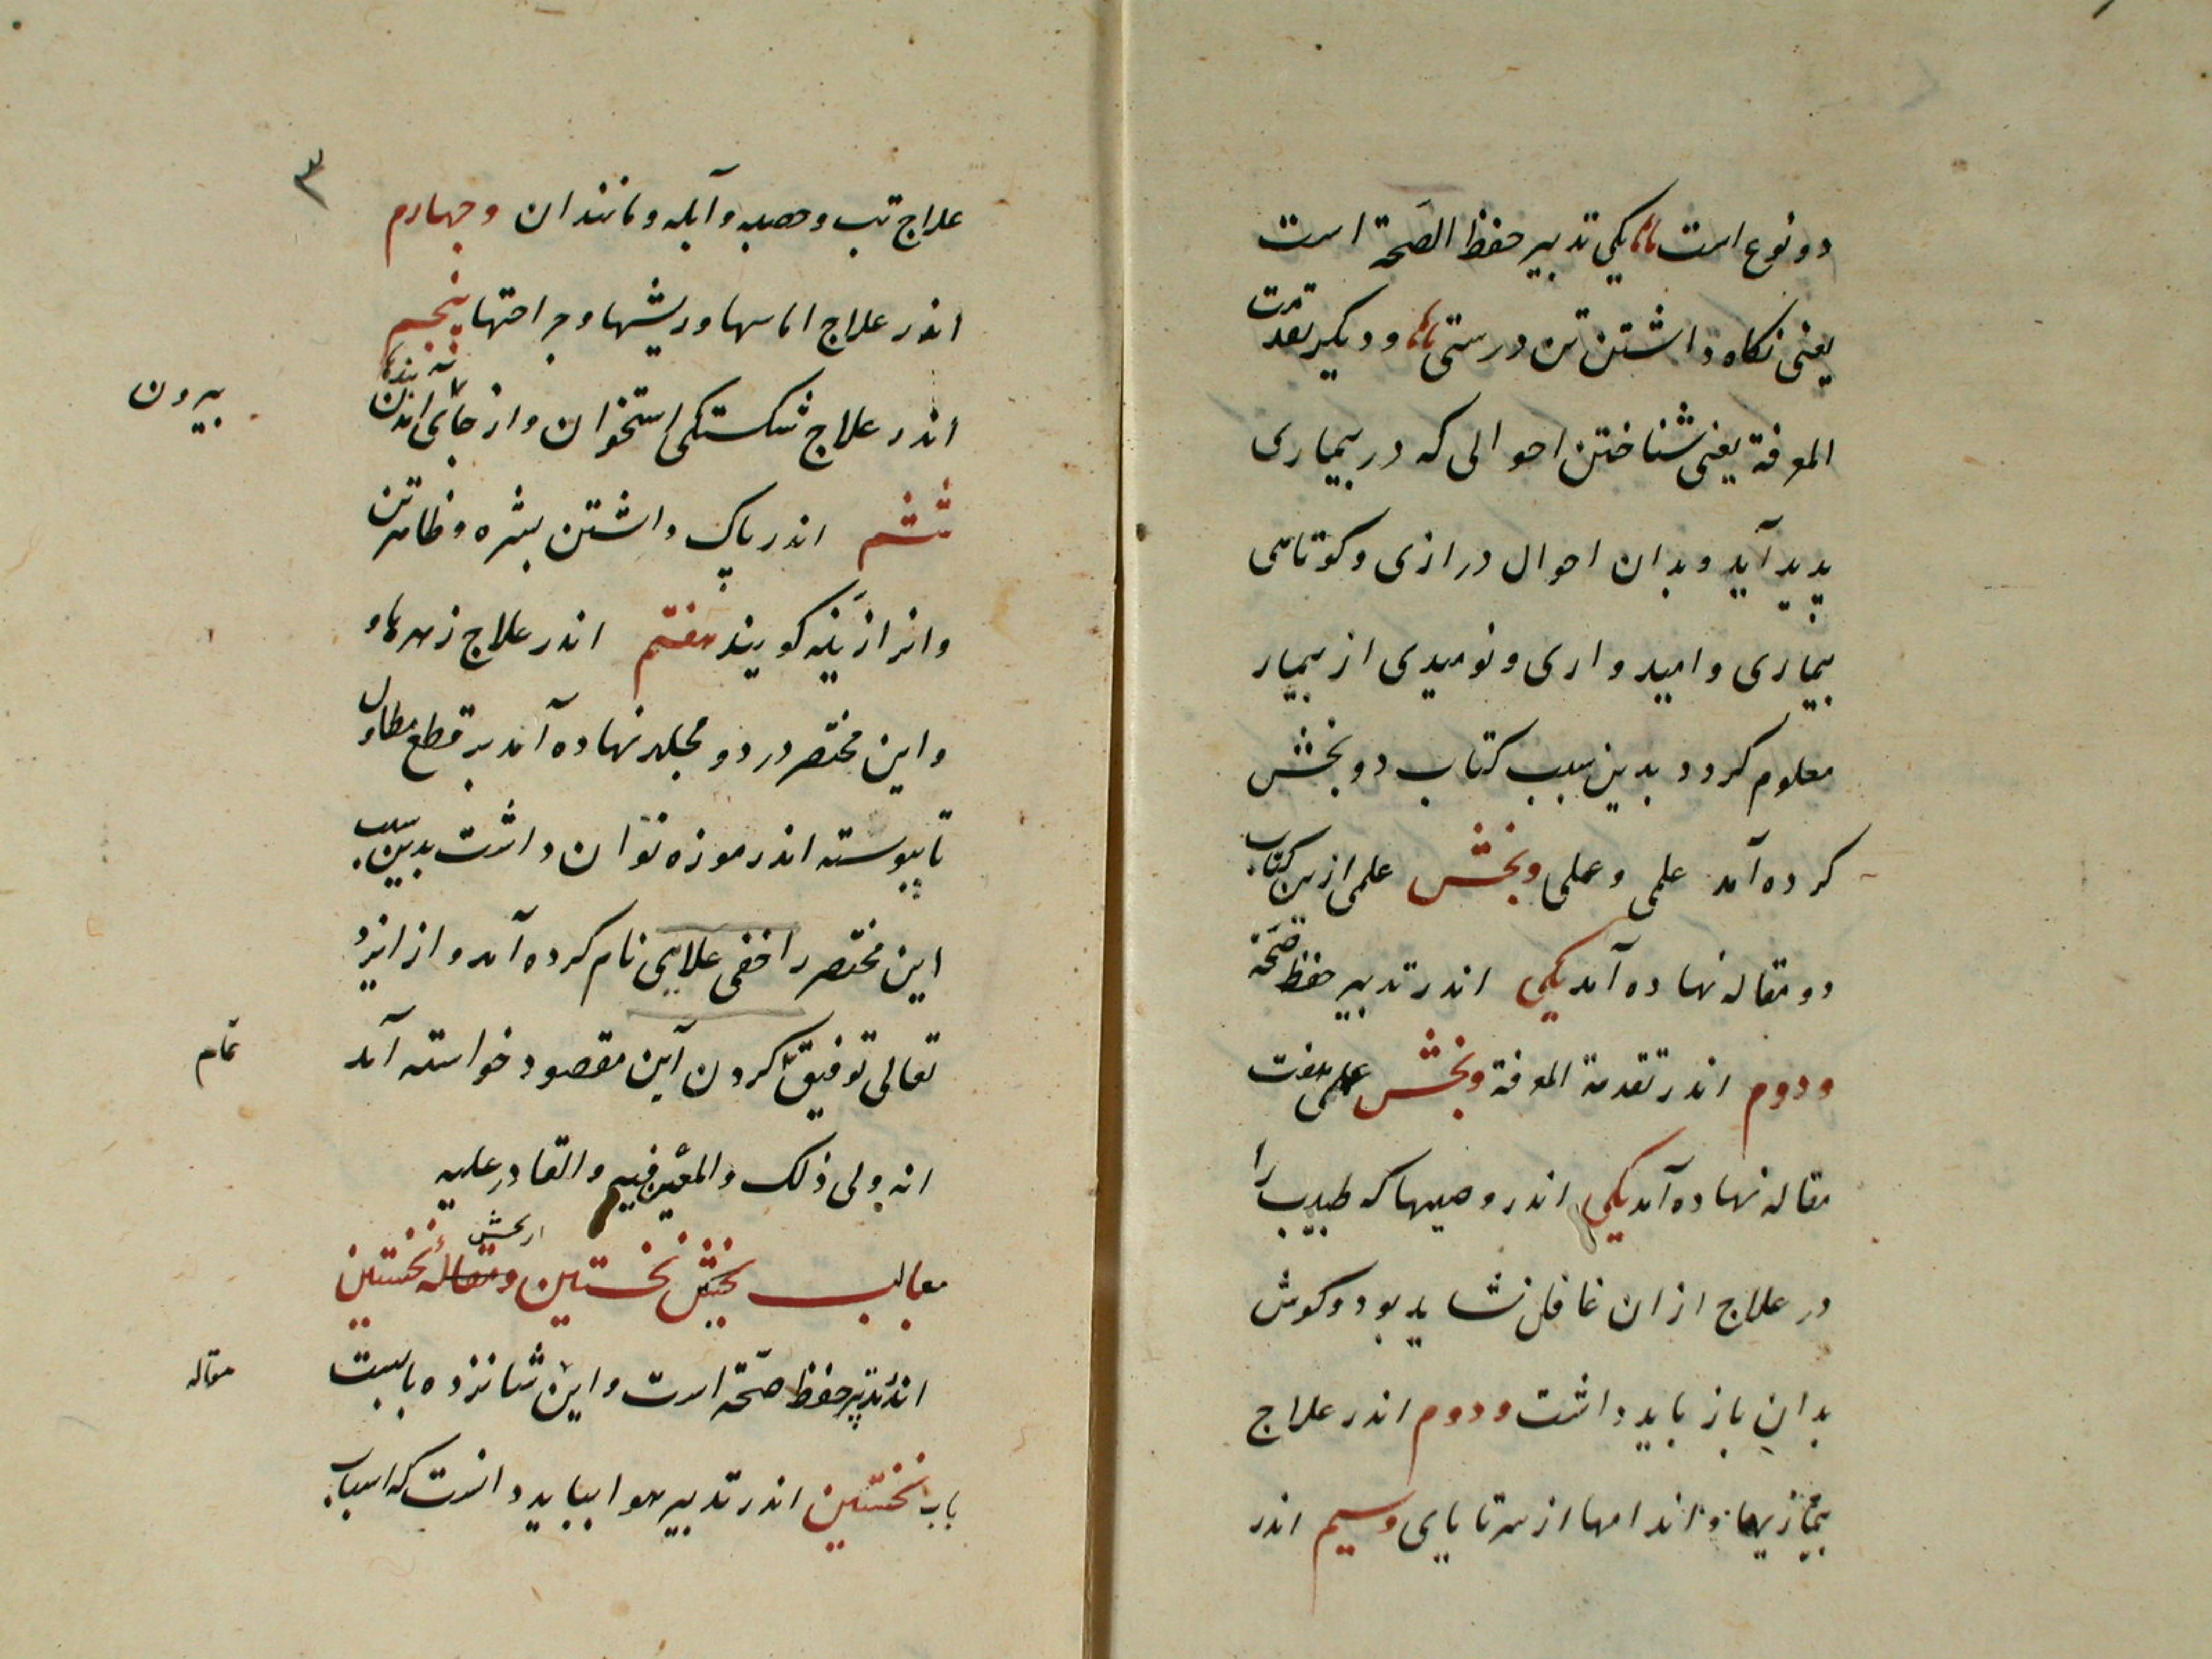 دو نوع است یکی تدبیر حفظ الصحة است
یعنی نکاه داشتن تن درستی و دیکر تقدمت
المعرفة یعنی شناختن احوالی که در بیماری
پدید آید و بدان احوال درازی و کوتاهی
بیماری و امیدواری و نومیدی از بیمار
معلوم کردد بدین سبب کتاب دو بخش
کرده آمد علمی و عملی و بخش علمی ازین کتاب
دو مقاله نهاده آمد یکی اندر تدبیر حفظ صحة
و دوم اندر تقدمة المعرفة و بخش عملی هفت
مقاله نهاده آمد یکی اندر وصیها که طبیب را
در علاج از ان غافل نشاید بود و کوش
بدان باز باید داشت و دوم اندر علاج
بیماریها و اندامها از سر تا پای و سیم اندر
۳
علاج تب و حصبه و آبله و مانند ان و چهارم
اندر علاج اماسها و ریشها و جراحتها پنجم
اندر علاج شکستکی استخوان و از جای امدن
بیرون
ششم اندر پاک داشتن بشره و ظاهر تن
وانرا زینه کویند هفتم اندر علاج زهرها و
و این مختصر در دو مجلد نهاده آمد بر قطع مطاول
تا پیوسته اندر موزه توان داشت بدین سبب
این مختصر را خفی علایی نام کرده آمد و از ایزد
تعالی توفیق کردن این مقصود خواسته آمد
تمام
انه ولی ذلک والمعین فیه والقادر علیه
از بخش
بخش نخستین و مقاله نخستین
اندر تدبیر حفظ صحّة است و این شانزده بابست
مقاله
باب نخستین اندر تدبیر هوا بباید دانست که اسباب